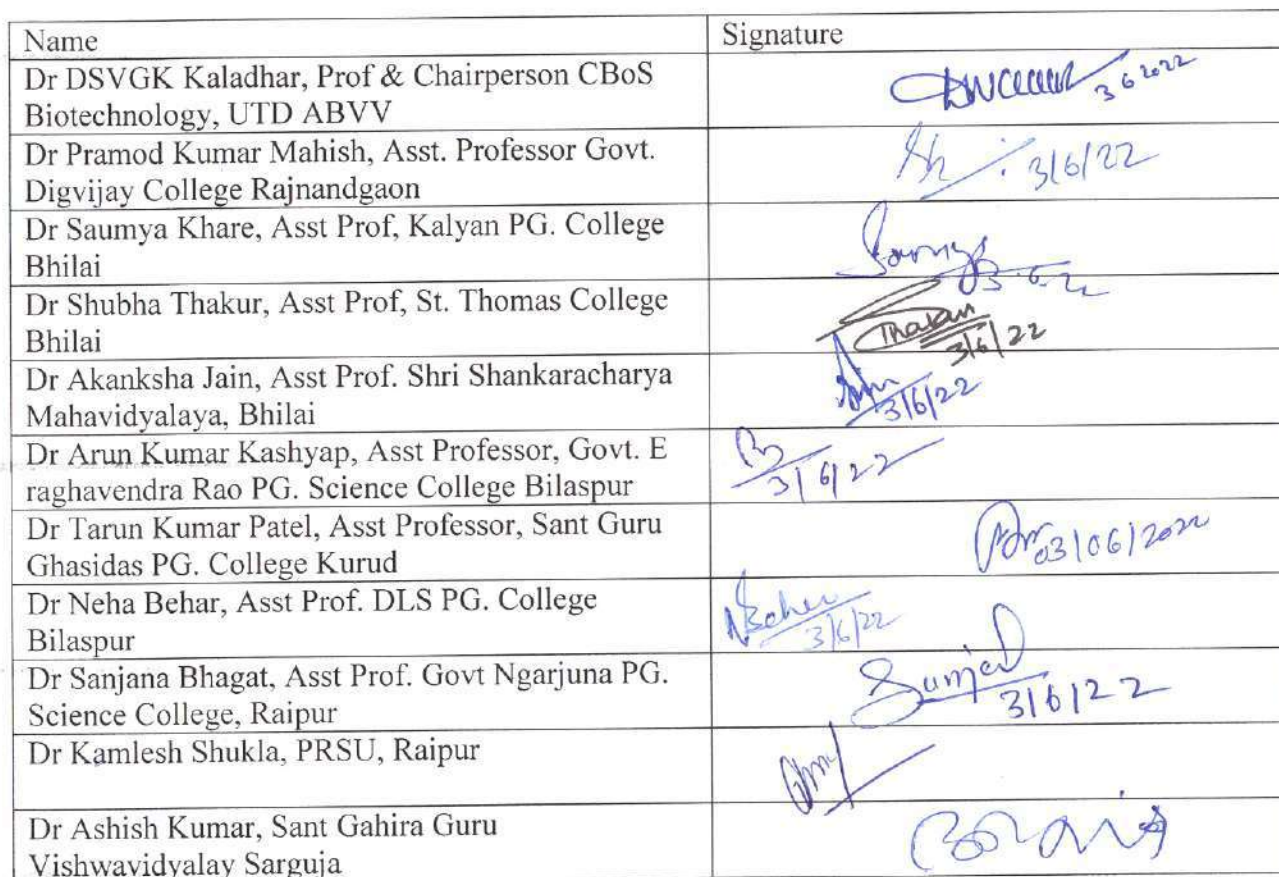 Name
Signature
Dr DSVGK Kaladhar, Prof & Chairperson CBoS
Biotechnology, UTD ABVV
3 6 2022
Dr Pramod Kumar Mahish, Asst. Professor Govt.
Digvijay College Rajnandgaon
3/6/22
Dr Saumya Khare, Asst Prof, Kalyan PG. College
Bhilai
3.6.22
Dr Shubha Thakur, Asst Prof, St. Thomas College
Bhilai
Thakur
3/6/22
Dr Akanksha Jain, Asst Prof. Shri Shankaracharya
Mahavidyalaya, Bhilai
3/6/22
Dr Arun Kumar Kashyap, Asst Professor, Govt. E
raghavendra Rao PG. Science College Bilaspur
3/6/22
Dr Tarun Kumar Patel, Asst Professor, Sant Guru
Ghasidas PG. College Kurud
03/06/2022
Dr Neha Behar, Asst Prof. DLS PG. College
Bilaspur
NBehar
3/6/22
Dr Sanjana Bhagat, Asst Prof. Govt Ngarjuna PG.
Science College, Raipur
3/6/22
Dr Kamlesh Shukla, PRSU, Raipur
Dr Ashish Kumar, Sant Gahira Guru
Vishwavidyalay Sarguja